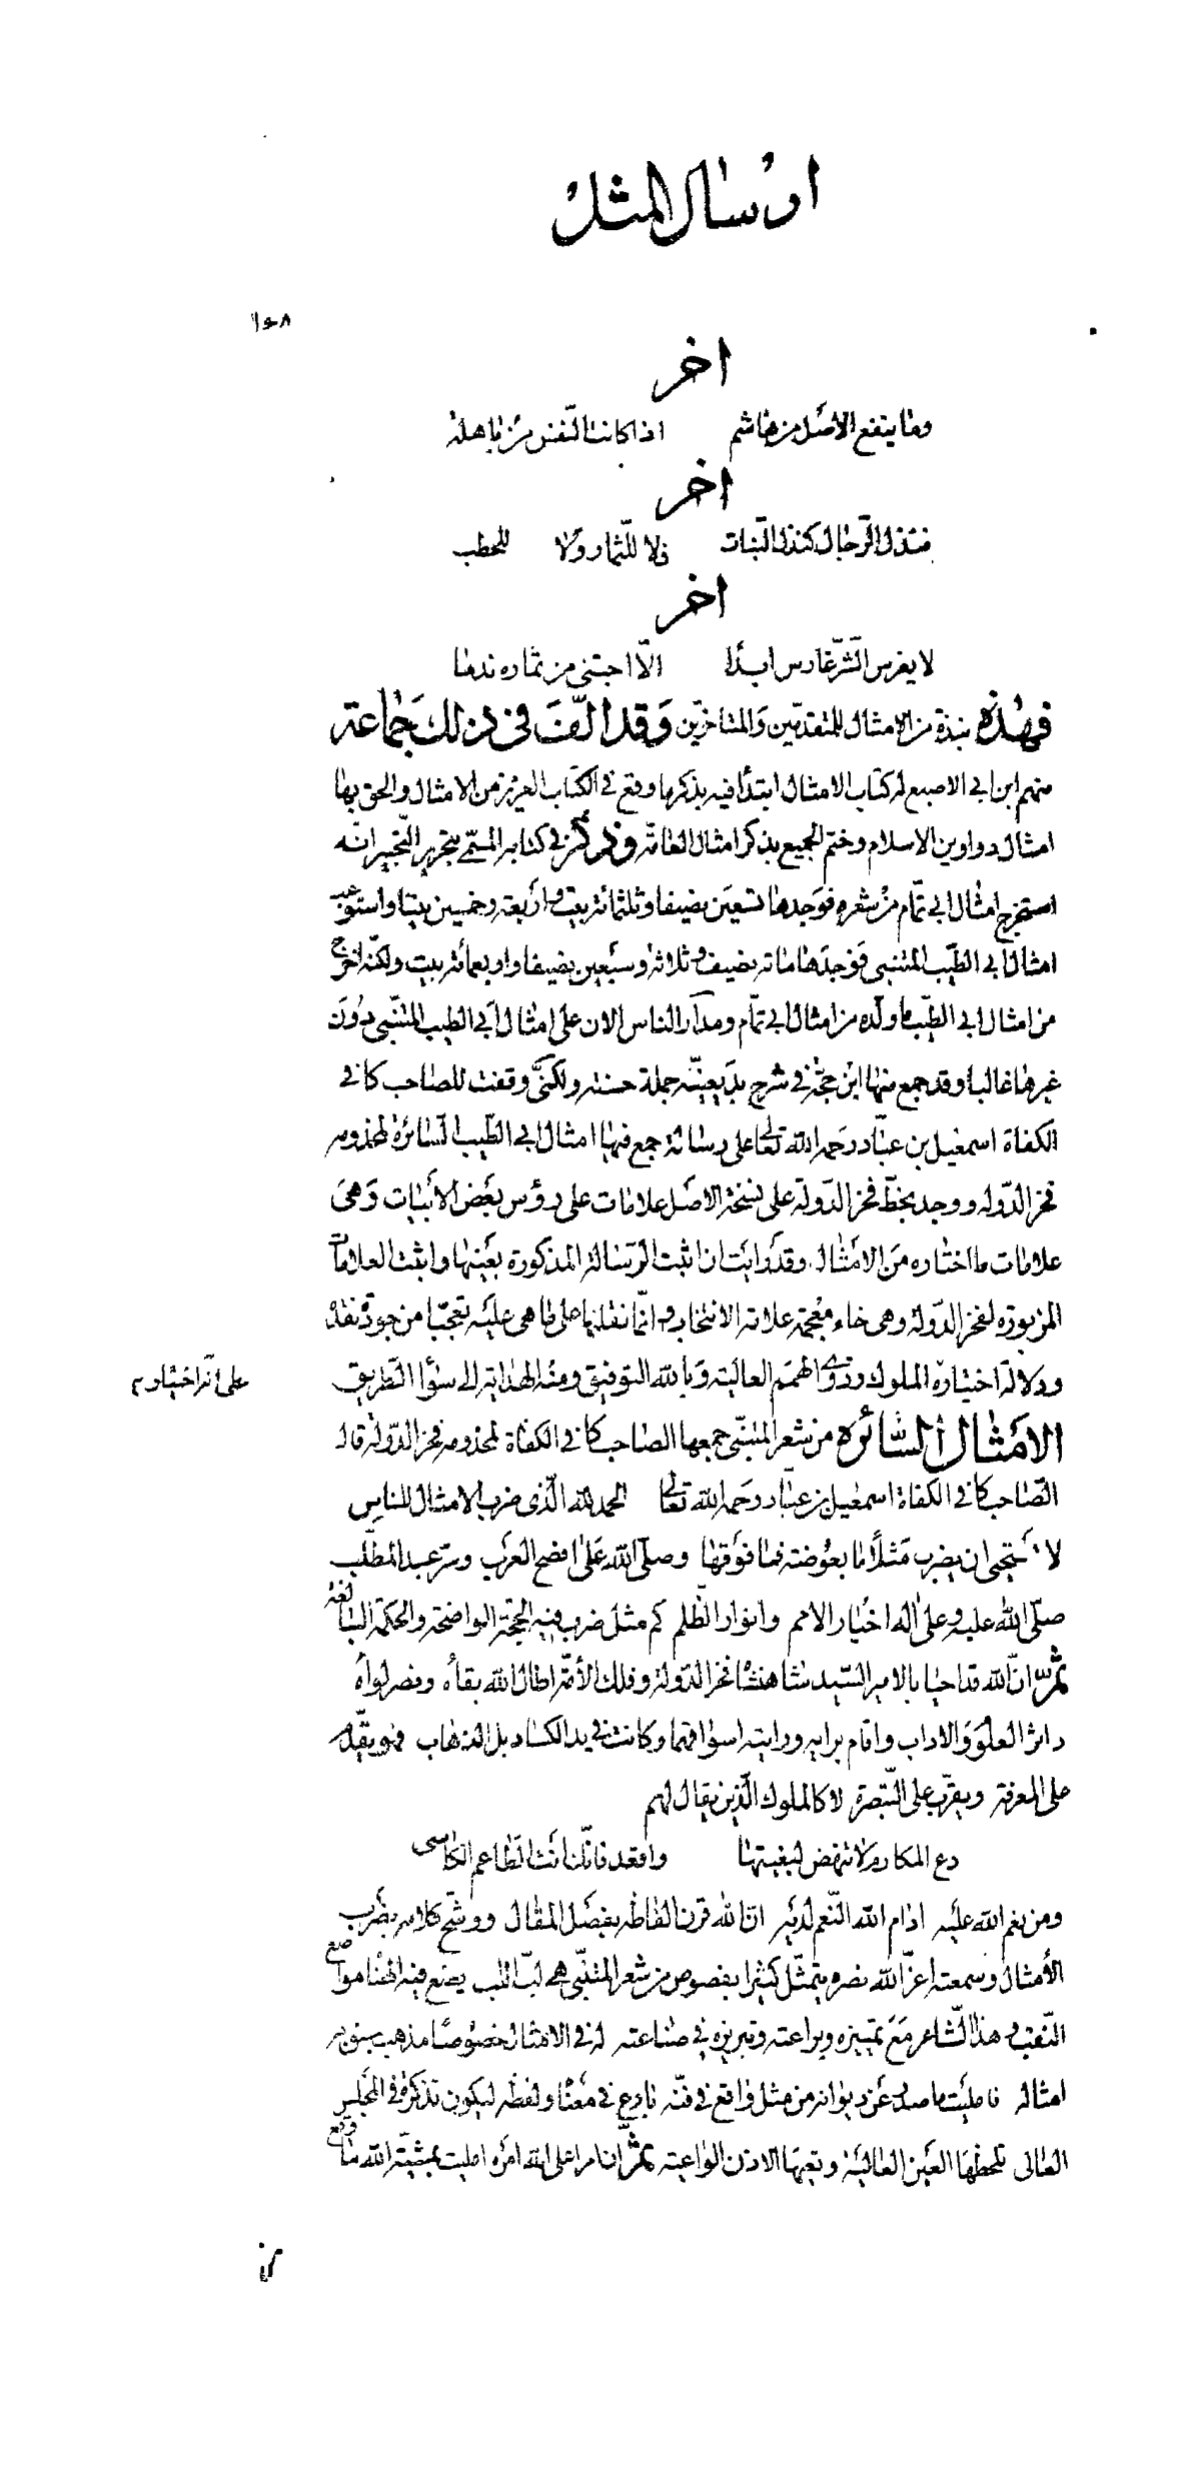 ارسال المثل
١٥٨
اخر
وما ينفع الاصل من هاشم اذا كانت النفس من باهلة
اخر
فنذل الرجال كنذل النبات فلا للثمار ولا للحطب
اخر
لا يغرس الشر غارس ابدا الا اجتنى من ثماره ندما
فهذه نبذة من الامثال للمتقدمين والمتاخرين وقد الف في ذلك جماعة
منهم ابن ابي الاصبع له كتاب الامثال ابتدأ فيه بذكر ما وقع في الكتاب العزيز من الامثال والحق بها
امثال دواوين الاسلام وختم الجميع بذكر امثال العامة وذكر في كتابه المسمى بتحرير التحبير انه
استخرج امثال ابي تمام من شعره فوجدها تسعين نصيفا وثلثمائة بيت واربعة وخمسين بيتا واستوعب
امثال ابي الطيب المتنبي فوجدها مائة نصيف وثلاثة وسبعين نصيفا واربعمائة بيت ولكنه اخرج
من امثال ابي الطيب ما ولده من امثال ابي تمام ومدار الناس الان على امثال ابي الطيب المتنبي دون
غيرها غالبا وقد جمع منها ابن حجة في شرح بديعيته جملة حسنة ولكني وقفت للصاحب كافي
الكفاة اسمعيل بن عباد رحمه الله تعالى على رسالة جمع فيها امثال ابي الطيب السائرة لمخدومه
فخر الدوله ووجد بخط فخر الدولة على نسخة الاصل علامات على رؤس بعض الابيات وهي
علامات ما اختاره من الامثال وقد رايت ان اثبت الرسالة المذكورة بعينها واثبت العلامات
المزبورة لفخر الدولة وهي خاء معجمة علامة الانتخاب وانما نقلتها على ما هي عليه تعجبا من جودة نقده
ودلالة اختياره الملوك وذوي الهمم العالية وبالله التوفيق ومنه الهداية الى سواء الطريق
على اثر اختياره
الامثال السائرة من شعر المتنبي جمعها الصاحب كافي الكفاة لمخدومه فخر الدولة قال
الصاحب كافي الكفاة اسمعيل بن عباد رحمه الله تعالى الحمد لله الذي ضرب الامثال للناس
لا يستحيى ان يضرب مثلا ما بعوضة فما فوقها وصلى الله على افصح العرب وسر عبد المطلب
صلى الله عليه وعلى اله اخيار الامم وانوار الظلم كم مثل ضرب فيه الحجة الواضحة والحكمة البالغة
ثم ان الله قد احيا بالامير السيد شاهنشاه فخر الدولة وفلك الأمة اطال الله بقاه ونصر لواه
داثر العلوم والاداب واقام برايه ورايته اسواقهما وكانت في يد الكساد بل الذهاب فهو يقبل
على المعرفة ويقرب على التبصرة لا كالملوك الذين يقال لهم
دع المكارم لا تنهض لبغيتها واقعد فانك انت الطاعم الكاسي
ومن نعم الله عليه ادام الله النعم لديه ان الله قرن الفاظه بفصل المقال ووشح كلامه بضرب
الأمثال وسمعته اعز الله نصره يتمثل كثيرا بفصوص من شعر المتنبي هي لب اللب يضع فيه الهناء مواضع
النقب وهذا الشاعر مع تميزه وبراعته وتبريزه في صناعته له في الامثال خصوصا مذهب سبق به
امثاله فامليت ما صدر عن ديوانه من مثل واقع في فنه بارع في معناه ولفظه ليكون تذكرة في المجلس
العالي تلحظها العين العالية وتعيها الاذن الواعية ثم ان امر اعلى الله امره امليت بمشية الله ما وقع